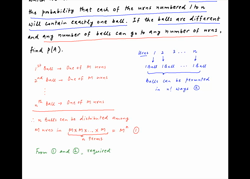 the probability that each of the urns numbered 1 to n
will contain exactly one ball. If the balls are different
and any number of balls can go to any number of urns,
find P(A).
1st Ball → One of M urns
2nd Ball → One of M urns
nth Ball → One of M urns
∴ n Balls can be distributed among
M urns in M×M×...×M = Mⁿ ①
n Terms
Urns 1 2 3 ... n
1Ball 1Ball ... 1Ball
Balls can be permuted
in n! ways ②
From ① and ②, required